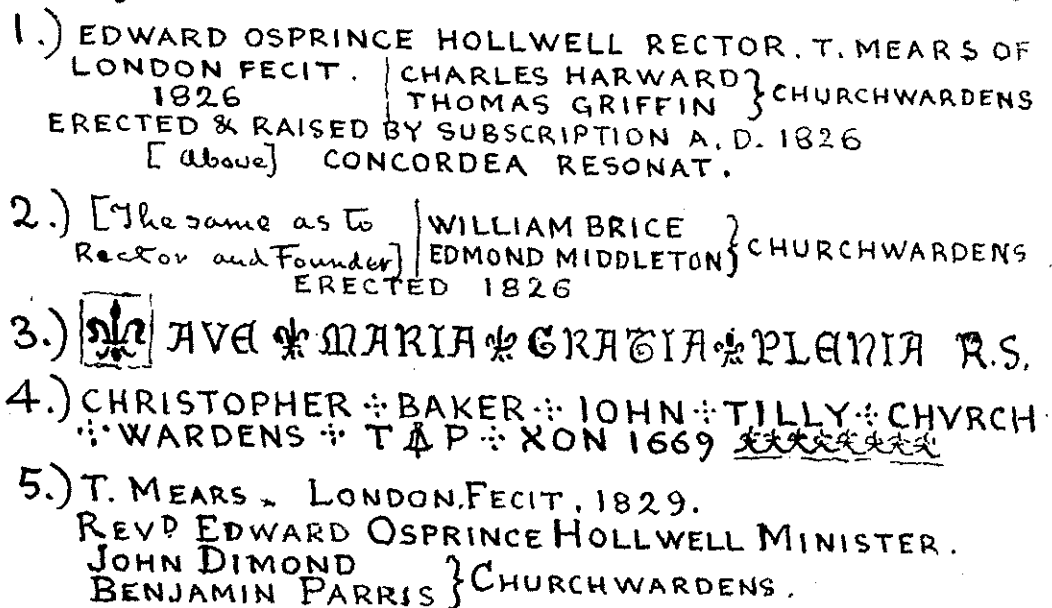 1.) EDWARD OSPRINCE HOLLWELL RECTOR. T. MEARS OF
LONDON FECIT. | CHARLES HARWARD } CHURCHWARDENS
1826 | THOMAS GRIFFIN
ERECTED & RAISED BY SUBSCRIPTION A.D. 1826
[above] CONCORDEA RESONAT.
2.) [The same as to | WILLIAM BRICE } CHURCHWARDENS
Rector and Founder] | EDMOND MIDDLETON
ERECTED 1826
3.) AVE MARIA GRATIA PLENIA R.S.
4.) CHRISTOPHER BAKER IOHN TILLY CHVRCH
WARDENS T P XON 1669
5.) T. MEARS. LONDON.FECIT. 1829.
REVD EDWARD OSPRINCE HOLLWELL MINISTER.
JOHN DIMOND
BENJAMIN PARRIS } CHURCHWARDENS.